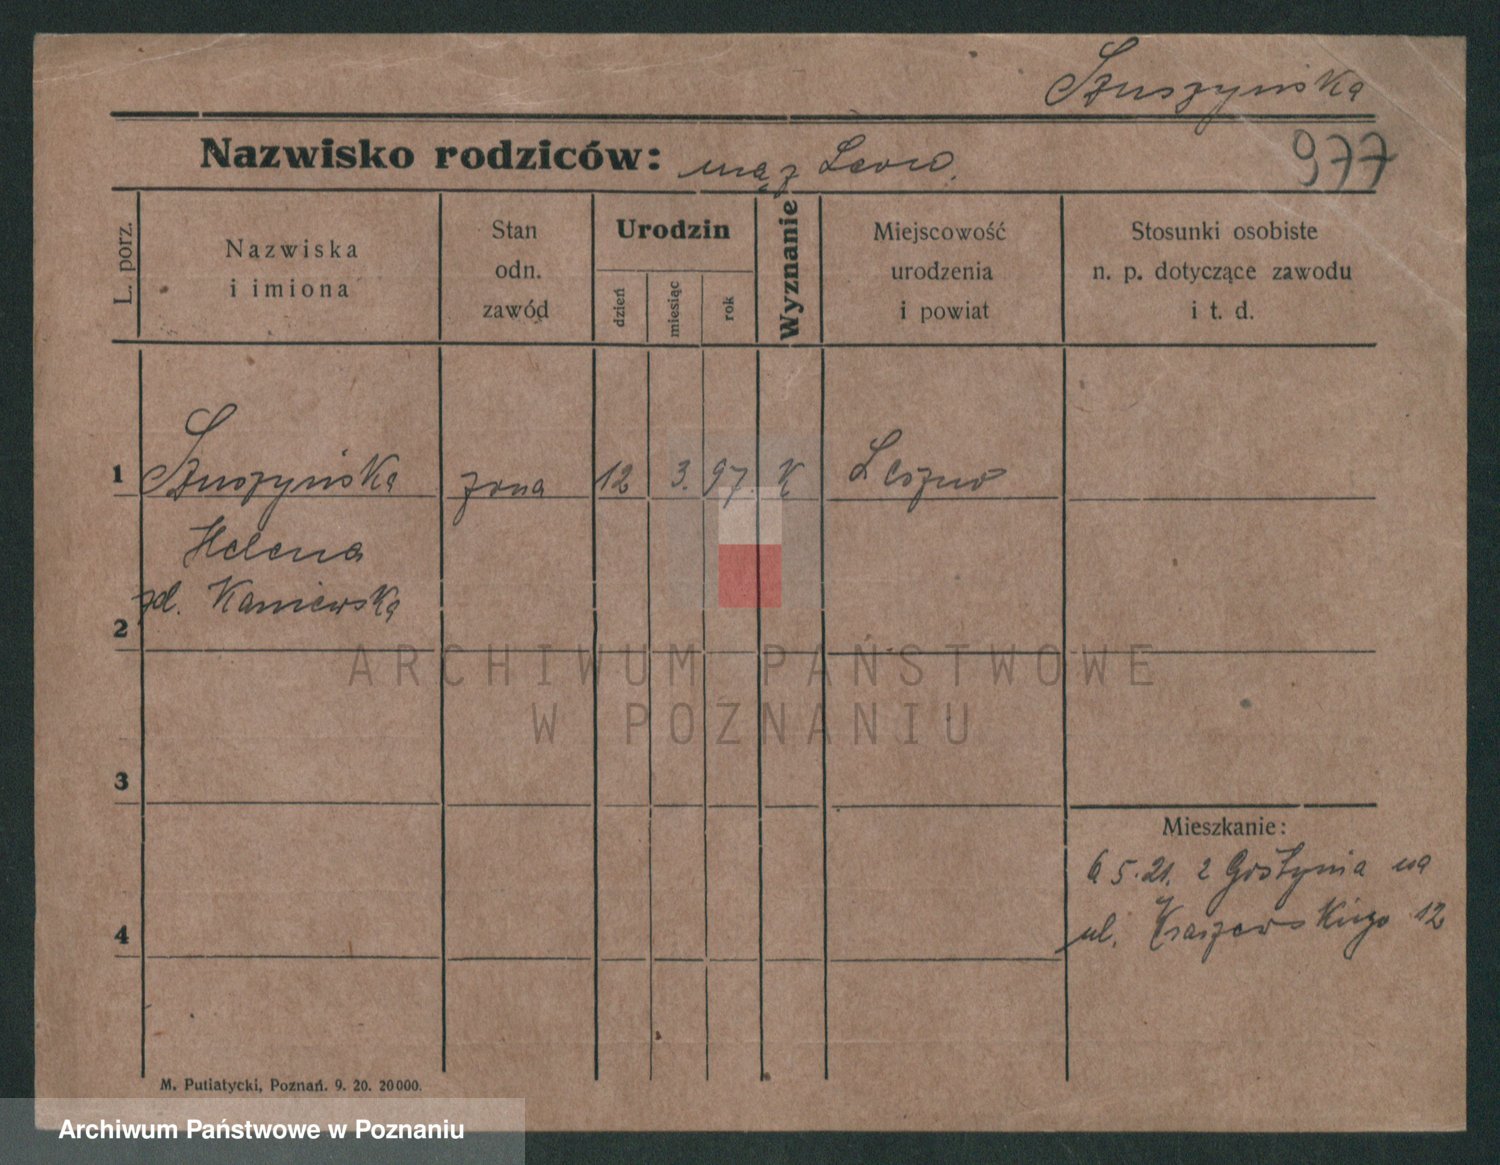 Szuszyńska
Nazwisko rodziców: mąż Leon.
977
L. porz.
Nazwiska
i imiona
Stan
odn.
zawód
Urodzin
dzień
miesiąc
rok
Wyznanie
Miejscowość
urodzenia
i powiat
Stosunki osobiste
n. p. dotyczące zawodu
i t. d.
1 Szuszyńska żona 12 3. 97. K Leszno
Helena
zd. Kaniewska
2
3
4
Mieszkanie:
6 5. 21. z Gostynia na
ul. Kraszewskiego 12
M. Putiatycki, Poznań. 9. 20. 20000.
ARCHIWUM PAŃSTWOWE
W POZNANIU
Archiwum Państwowe w Poznaniu